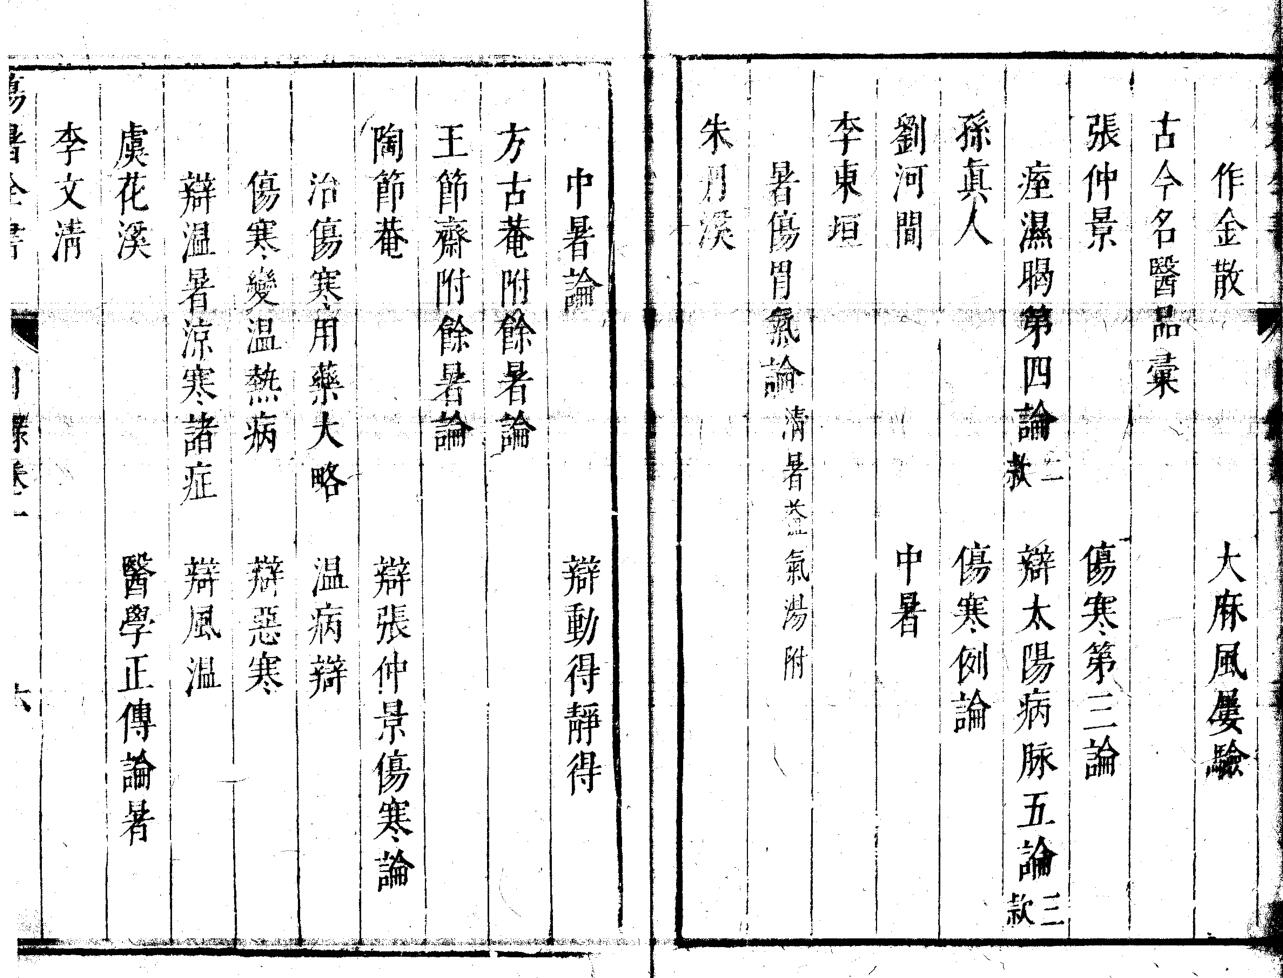 作金散　大麻風屢驗
古今名醫品彙
張仲景　傷寒第三論
痓濕暍第四論二款　辯太陽病脉五論三款
孫眞人　傷寒例論
劉河間　中暑
李東垣
暑傷胃氣論清暑益氣湯附
朱丹溪
中暑論　辯動得靜得
方古菴附餘暑論
王節齋附餘暑論
陶節菴　辯張仲景傷寒論
治傷寒用藥大略　温病辯
傷寒變温熱病　辯惡寒
辯温暑涼寒諸症　辯風温
虞花溪　醫學正傳論暑
李文清
傷暑全書　目錄卷上　六